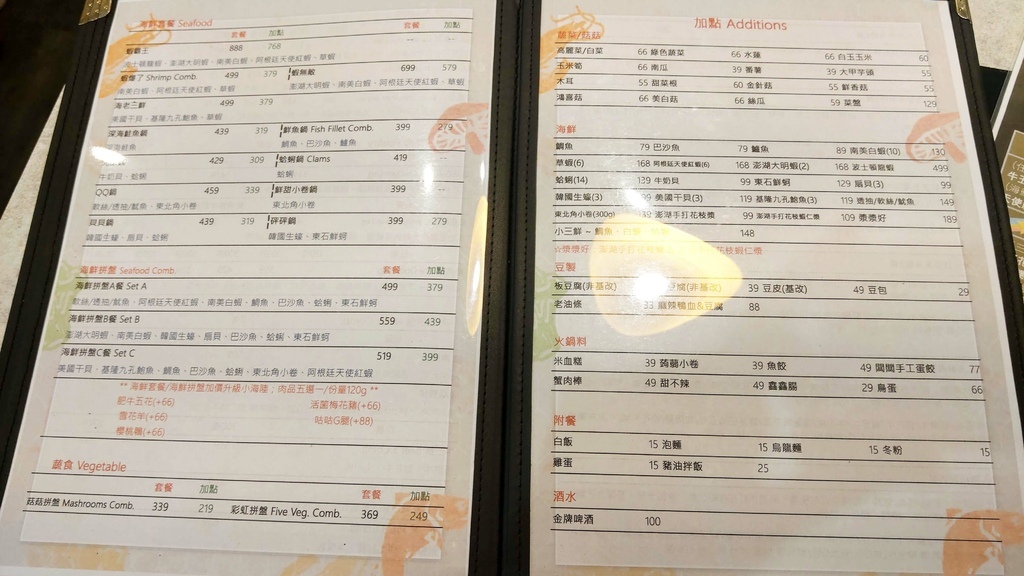 海鮮套餐 Seafood
套餐 加點 套餐 加點
蝦霸王 888 768
海士頓龍蝦、澎湖大明蝦、南美白蝦、阿根廷天使紅蝦、草蝦
蝦爆了 Shrimp Comb. 499 379 蝦無敵 699 579
南美白蝦、阿根廷天使紅蝦、草蝦 澎湖大明蝦、南美白蝦、阿根廷天使紅蝦、草蝦
海老三鮮 499 379
美國干貝、基隆九孔鮑魚、草蝦
深海魟魚鍋 439 319 鮮魚鍋 Fish Fillet Comb. 399 279
鯛魚、巴沙魚、鱸魚
429 309 蛤蜊鍋 Clams 419
牛奶貝、蛤蜊 蛤蜊
QQ鍋 459 339 鮮甜小卷鍋 399
軟絲/透抽/魷魚、東北角小卷 東北角小卷
貝貝鍋 439 319 砰砰鍋 399 279
韓國生蠔、扇貝、蛤蜊 韓國生蠔、東石鮮蚵
海鮮拼盤 Seafood Comb. 套餐 加點
海鮮拼盤A餐 Set A 499 379
軟絲/透抽/魷魚、阿根廷天使紅蝦、南美白蝦、鯛魚、巴沙魚、蛤蜊、東石鮮蚵
海鮮拼盤B餐 Set B 559 439
澎湖大明蝦、南美白蝦、韓國生蠔、扇貝、巴沙魚、蛤蜊、東石鮮蚵
海鮮拼盤C餐 Set C 519 399
美國干貝、基隆九孔鮑魚、鯛魚、巴沙魚、蛤蜊、東北角小卷、阿根廷天使紅蝦
**海鮮套餐/海鮮拼盤加價升級小海陸；肉品五選一/份量120g **
肥牛五花(+66) 活菌梅花豬(+66)
雪花羊(+66) 咕咕G腿(+88)
櫻桃鴨(+66)
蔬食 Vegetable
套餐 加點 套餐 加點
菇菇拼盤 Mashrooms Comb. 339 219 彩虹拼盤 Five Veg. Comb. 369 249
加點 Additions
蔬菜/菇菇
高麗菜/白菜 66 綠色蔬菜 66 水蓮 66 白玉玉米 60
玉米筍 66 南瓜 39 番薯 39 大甲芋頭 55
木耳 55 甜菜根 60 金針菇 55 鮮香菇 55
鴻喜菇 66 美白菇 66 絲瓜 59 菜盤 129
海鮮
鯛魚 79 巴沙魚 79 鱸魚 89 南美白蝦(10) 130
草蝦(6) 168 阿根廷天使紅蝦(6) 168 澎湖大明蝦(2) 168 波士頓龍蝦 499
蛤蜊(14) 139 牛奶貝 99 東石鮮蚵 129 扇貝(3) 99
韓國生蠔(3) 99 美國干貝(3) 119 基隆九孔鮑(3) 119 透抽/軟絲/魷魚 149
東北角小卷(300g) 澎湖手打花枝漿 99 澎湖手打花枝蝦仁漿 109 漿漿好 189
小三鮮 ~ 鯛魚 148
☆漿漿好
豆製
板豆腐(非基改) 豆腐(非基改) 39 豆皮(基改) 49 豆包 29
老油條 33 麻辣鴨血&豆腐 88
火鍋料
米血糕 39 蒟蒻小卷 39 魚餃 49 闆闆手工蛋餃 77
蟹肉棒 49 甜不辣 49 鑫鑫腸 29 鳥蛋 66
附餐
白飯 15 泡麵 15 烏龍麵 15 冬粉 15
雞蛋 15 豬油拌飯 25
酒水
金牌啤酒 100